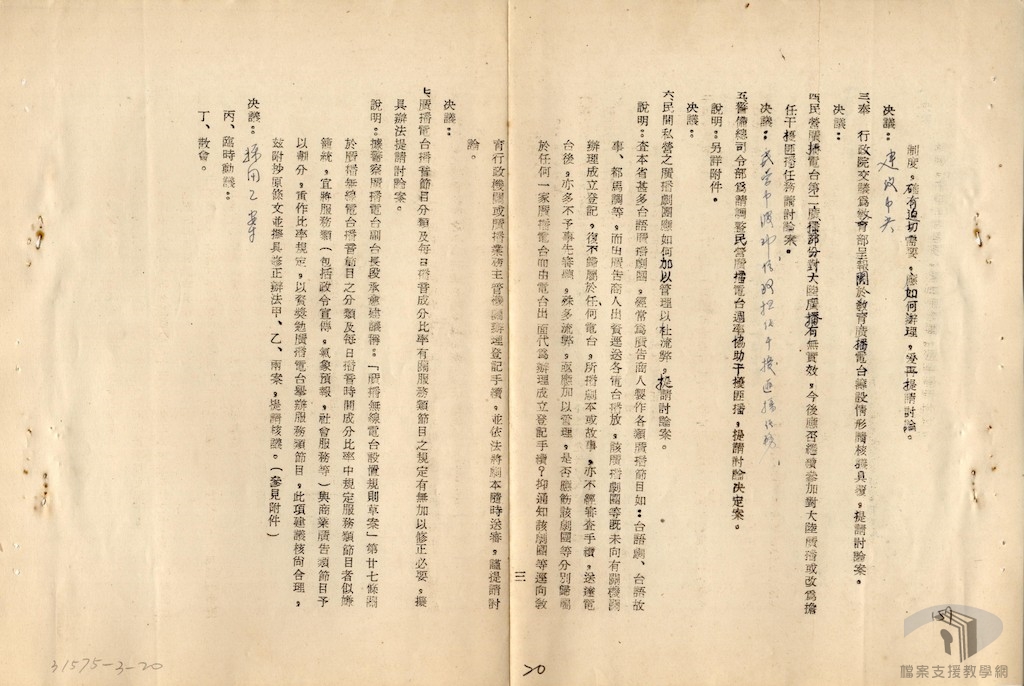 制度，確有迫切需要，應如何辦理，爰再提請討論。
決議：建改中央
三、奉　行政院交議為教育部呈報關於教育廣播電台籌設情形請核議具復，提請討論案。
決議：
四、民營廣播電台第二廣播部份對大陸廣播有無實效，今後應否繼續參加對大陸廣播或改為擔
任干擾匪播任務請討論案。
決議：民營中廣
五、警備總司令部為請調整民營廣播電台週率協助干擾匪播，提請討論決定案。
說明：另詳附件。
決議：
六、民間私營之廣播劇團應如何加以管理以杜流弊，提請討論案。
說明：查本省甚多台語廣播劇團，經常為廣告商人製作各類廣播節目如：台語劇、台語故
事、都馬調等，而由廣告商人出資運送各電台播放，該廣播劇團等既未向有關機關
辦理成立登記，復不歸屬於任何電台，所播劇本或故事，亦不經審查手續，送達電
台後，亦多不予事先審聽，殊多流弊，或應加以管理，是否應飭該劇團等分別歸屬
於任何一家廣播電台而由電台出面代為辦理成立登記手續？抑通知該劇團等逕向教
三
育行政機關或廣播業務主管機關辦理登記手續，並依法將劇本隨時送審，謹提請討
論。
決議：
七、廣播電台播音節目分類及每日播音成分比率有關服務類節目之規定有無加以修正必要，擬
具辦法提請討論案。
說明：據警察廣播電台副台長段承愈建議稱：「廣播無線電台設置規則草案」第廿七條關
於廣播無線電台播音節目之分類及每日播音時間成分比率中規定服務類節目者似嫌
籠統，宜將服務類（包括政令宣傳，氣象預報，社會服務等）與商業廣告類節目予
以劃分，重作比率規定，以資獎勉廣播電台舉辦服務類節目，此項建議核尚合理，
茲附抄原條文並擬具修正辦法甲、乙、兩案，提請核議。（參見附件）
決議：採用乙案
丙、臨時動議：
丁、散會。
20
31575-3-20
159
檔案支援教學網